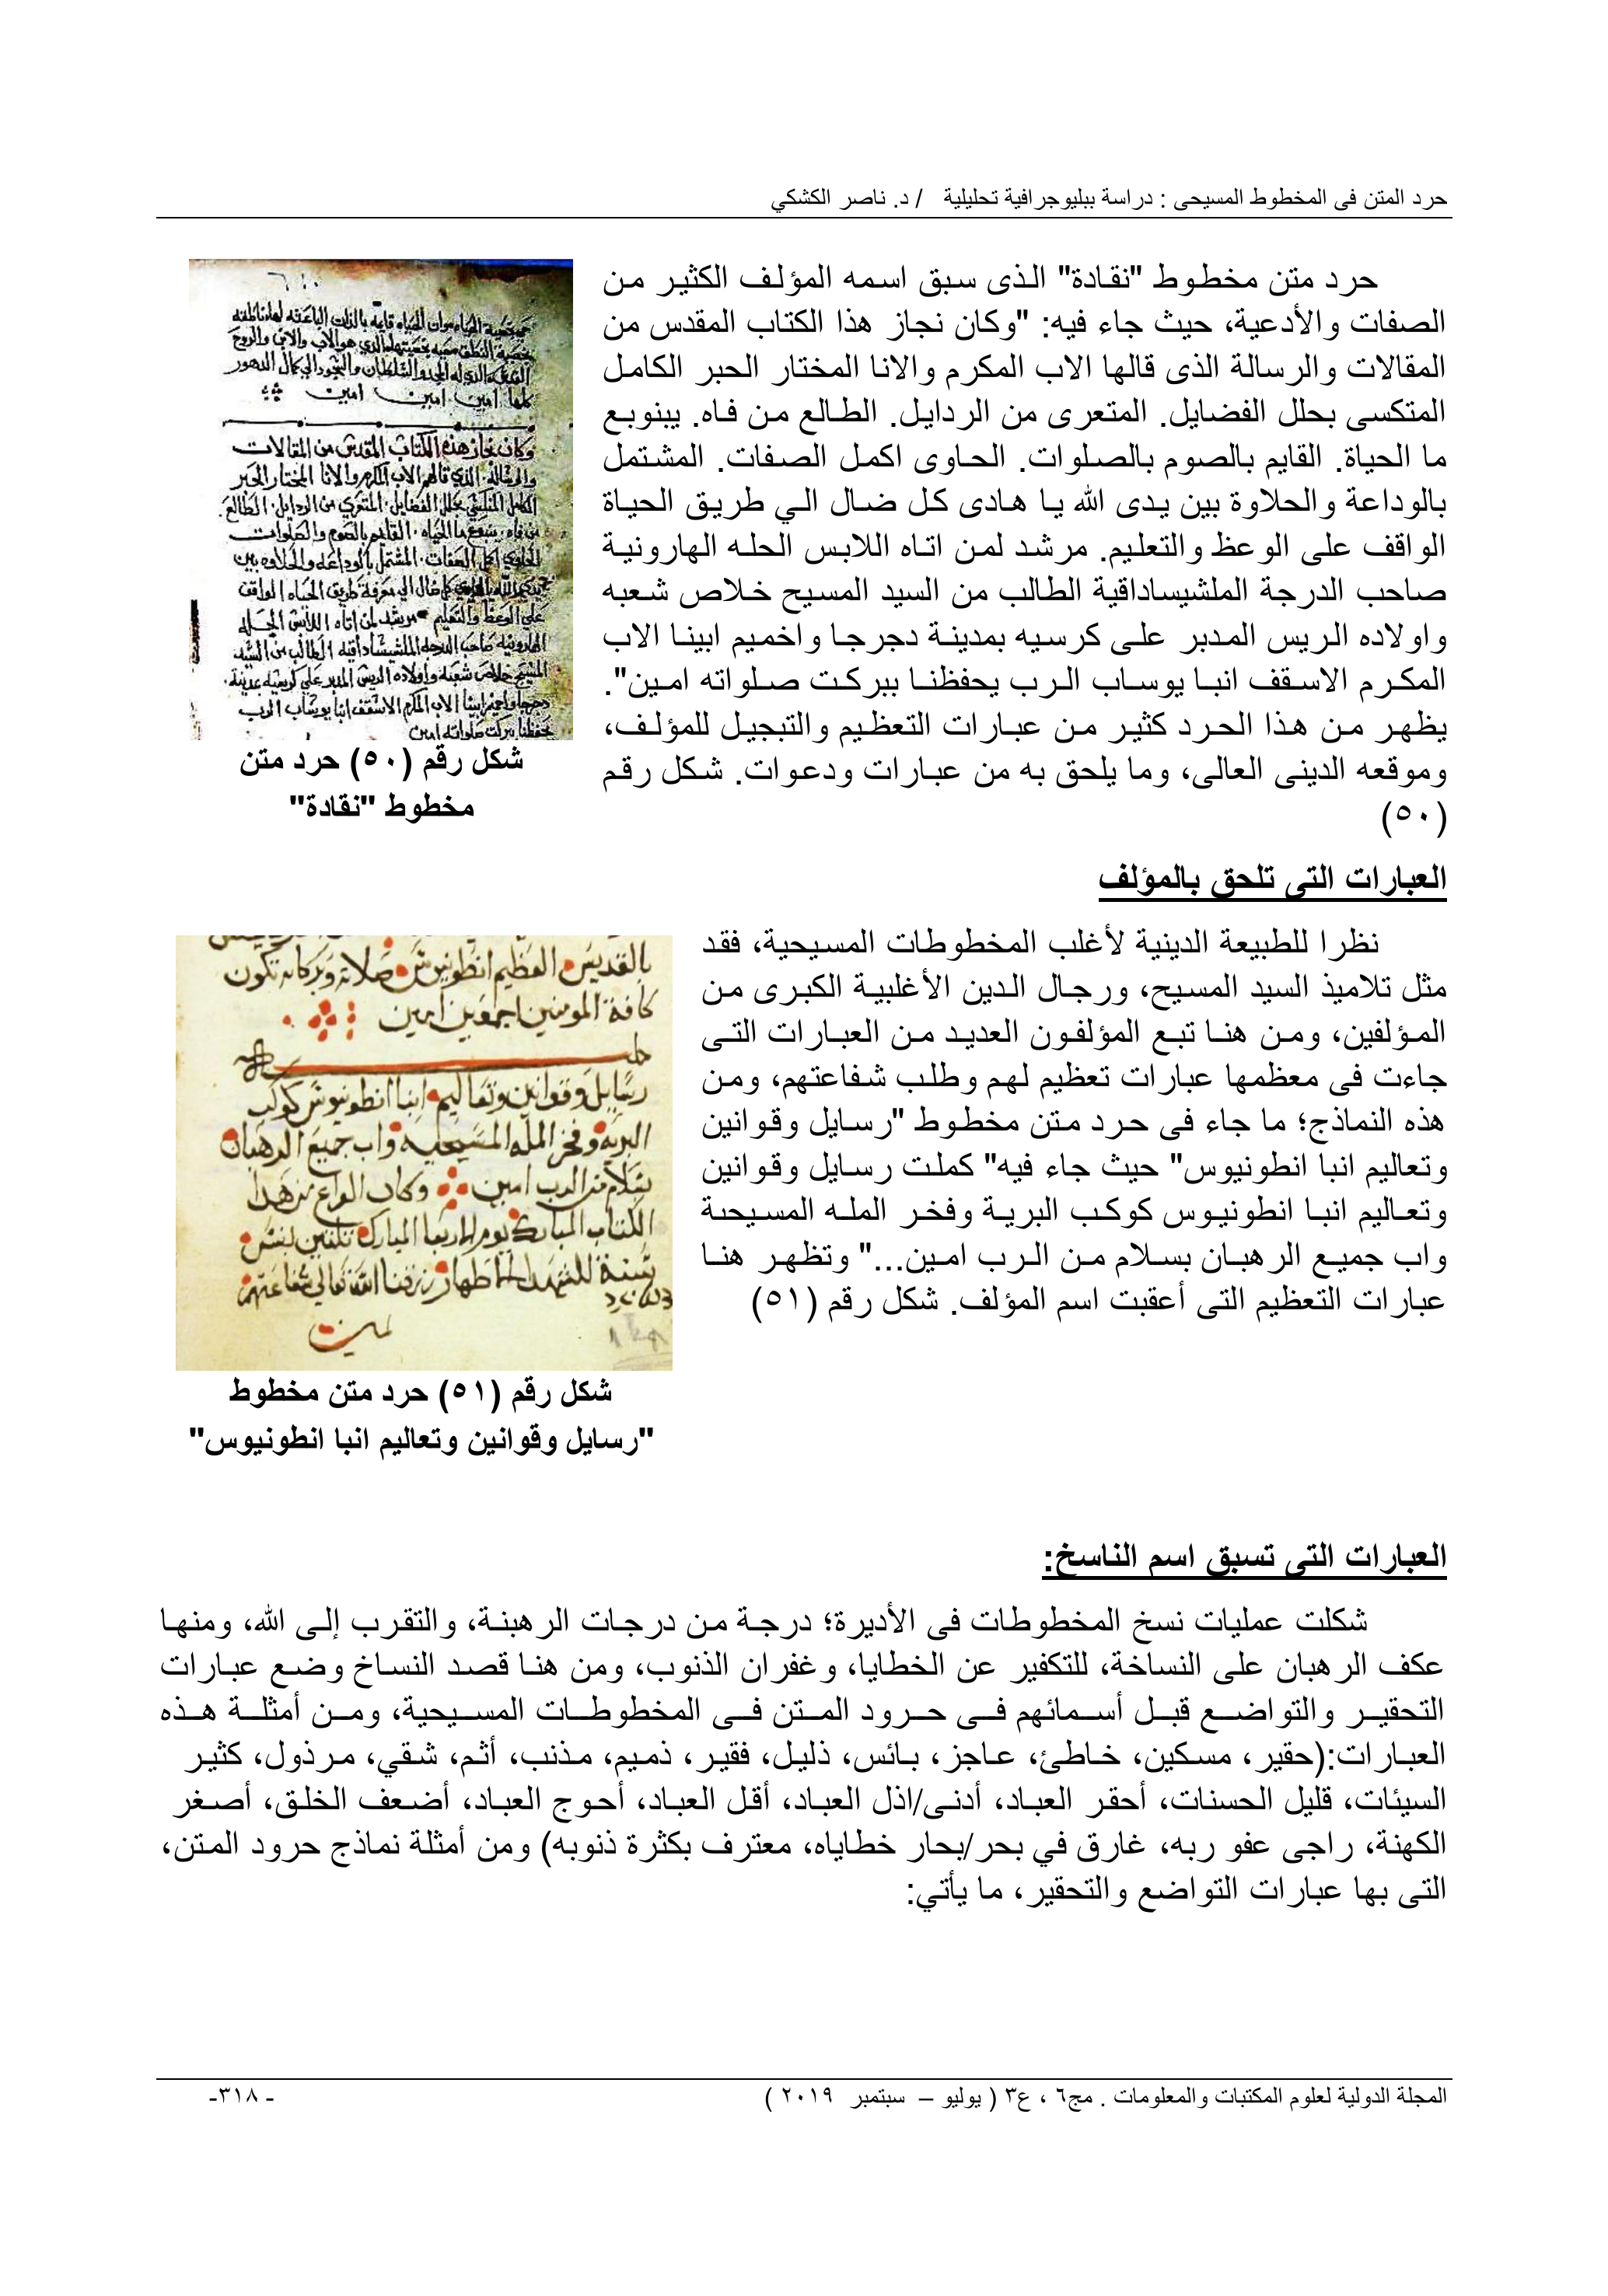 حرد المتن فى المخطوط المسيحى : دراسة ببليوجرافية تحليلية / د. ناصر الكشكي
حرد متن مخطوط "نقادة" الذى سبق اسمه المؤلف الكثير من
الصفات والأدعية، حيث جاء فيه: "وكان نجاز هذا الكتاب المقدس من
المقالات والرسالة الذى قالها الاب المكرم والانا المختار الحبر الكامل
المتكسى بحلل الفضايل. المتعرى من الردايل. الطالع من فاه. يبنوبع
ما الحياة. القايم بالصوم بالصلوات. الحاوى اكمل الصفات. المشتمل
بالوداعة والحلاوة بين يدى الله يا هادى كل ضال الي طريق الحياة
الواقف على الوعظ والتعليم. مرشد لمن اتاه اللابس الحله الهارونية
صاحب الدرجة الملشيساداقية الطالب من السيد المسيح خلاص شعبه
واولاده الريس المدبر على كرسيه بمدينة دجرجا واخميم ابينا الاب
المكرم الاسقف انبا يوساب الرب يحفظنا ببركت صلواته امين".
يظهر من هذا الحرد كثير من عبارات التعظيم والتبجيل للمؤلف،
وموقعه الدينى العالى، وما يلحق به من عبارات ودعوات. شكل رقم
(٥٠)
وكان نجاز هذه الكتاب المقدس من المقالات
والرسالة الذي قالهم الاب المكرم والانا المختار الحبر
الكامل المتكسي بحلل الفضايل. المتعري من الردايل. الطالع
علي الوعظ والتعليم مرشد لمن اتاه اللابس الحله
شكل رقم (٥٠) حرد متن
مخطوط "نقادة"
العبارات التى تلحق بالمؤلف
نظرا للطبيعة الدينية لأغلب المخطوطات المسيحية، فقد
مثل تلاميذ السيد المسيح، ورجال الدين الأغلبية الكبرى من
المؤلفين، ومن هنا تبع المؤلفون العديد من العبارات التى
جاءت فى معظمها عبارات تعظيم لهم وطلب شفاعتهم، ومن
هذه النماذج؛ ما جاء فى حرد متن مخطوط "رسايل وقوانين
وتعاليم انبا انطونيوس" حيث جاء فيه" كملت رسايل وقوانين
وتعاليم انبا انطونيوس كوكب البرية وفخر المله المسيحىة
واب جميع الرهبان بسلام من الرب امين..." وتظهر هنا
عبارات التعظيم التى أعقبت اسم المؤلف. شكل رقم (٥١)
بالقديس العظيم انطونيوس صلاته وبركاته تكون
كافة المومنين اجمعين امين
رسايل وقوانين وتعاليم انبا انطونيوش كوكب
البرية وفخر المله المسيحيه واب جميع الرهبان
بسلام من الرب امين وكان الفراغ من هذا
الكتاب المبارك يوم الاربعا المبارك
امين
شكل رقم (٥١) حرد متن مخطوط
"رسايل وقوانين وتعاليم انبا انطونيوس"
العبارات التى تسبق اسم الناسخ:
شكلت عمليات نسخ المخطوطات فى الأديرة؛ درجة من درجات الرهبنة، والتقرب إلى الله، ومنها
عكف الرهبان على النساخة، للتكفير عن الخطايا، وغفران الذنوب، ومن هنا قصد النساخ وضع عبارات
التحقير والتواضع قبل أسمائهم فى حرود المتن فى المخطوطات المسيحية، ومن أمثلة هذه
العبارات:(حقير، مسكين، خاطئ، عاجز، بائس، ذليل، فقير، ذميم، مذنب، أثم، شقي، مرذول، كثير
السيئات، قليل الحسنات، أحقر العباد، أدنى/اذل العباد، أقل العباد، أحوج العباد، أضعف الخلق، أصغر
الكهنة، راجى عفو ربه، غارق في بحر/بحار خطاياه، معترف بكثرة ذنوبه) ومن أمثلة نماذج حرود المتن،
التى بها عبارات التواضع والتحقير، ما يأتي:
المجلة الدولية لعلوم المكتبات والمعلومات . مج٦ ، ع٣ ( يوليو – سبتمبر ٢٠١٩ )
- ٣١٨-